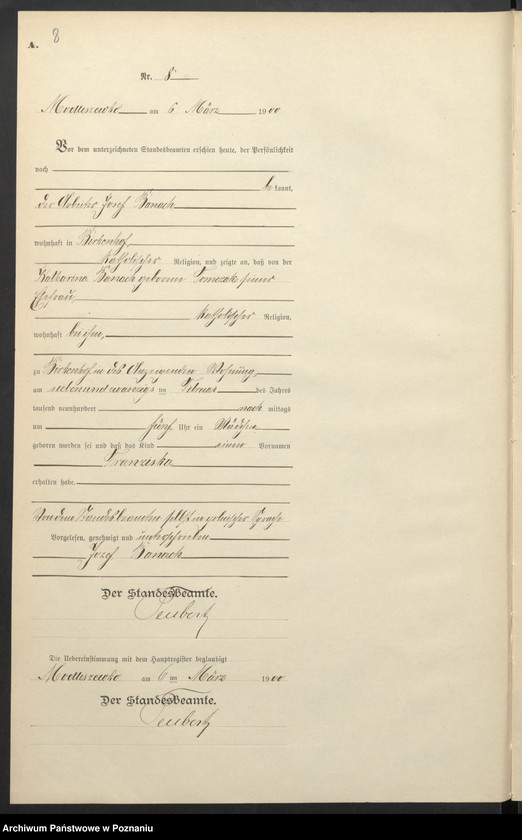 A. 8
Nr. 8
am 6 März 1900
Vor dem unterzeichneten Standesbeamten erschien heute, der Persönlichkeit
nach
be kannt,
der Arbeiter Josef Banach
wohnhaft in Birkenhof
katholischer Religion, und zeigte an, daß von der
Katharina Banach geborene Tomczak seiner
Ehefrau,
katholischer Religion,
wohnhaft bei ihm,
zu Birkenhof in des Anzeigenden Wohnung,
am siebenundzwanzigs ten Februar des Jahres
tausend neunhundert nach mittags
um fünf Uhr ein Mädchen
geboren worden sei und daß das Kind einen Vornamen
Franziska
erhalten habe.
Von dem Standesbeamten selbst in polnischer Sprache
Vorgelesen, genehmigt und unterschrieben
Josef Banach
Der Standesbeamte.
Teubert
Die Uebereinstimmung mit dem Hauptregister beglaubigt
am 6 ten März 1900
Der Standesbeamte.
Teubert
Archiwum Państwowe w Poznaniu